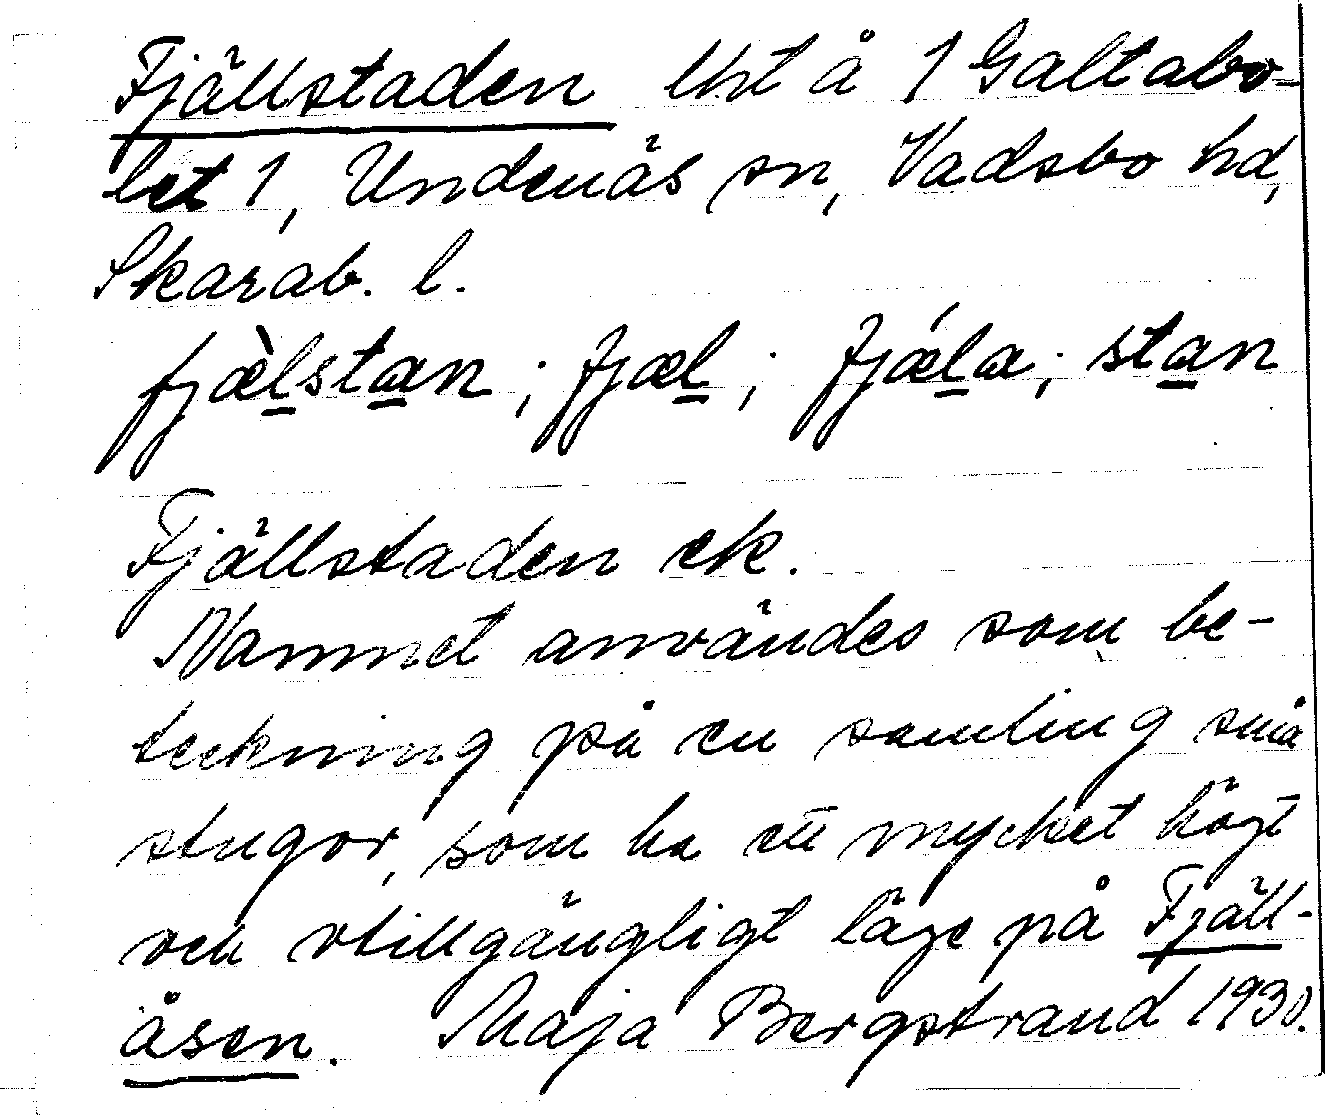 Fjällstaden lht å 1 Galtabo-
let 1, Undenäs sn, Vadsbo hd,
Skarab. l.
fjæ̀l̲sta̲n ; fjæl̲ ; fjǽl̲a ; sta̲n
Fjällstaden ek.
Namnet användes som be-
teckning på en samling små
stugor, som ha ett mycket högt
och otillgängligt läge på Fjäll-
åsen. Maja Bergstrand 1930.